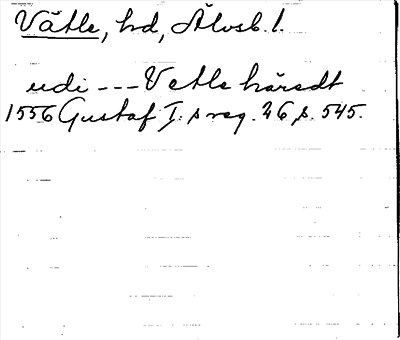 Vätle, hd, Älvsb. l.
udi --- Vetle häredt
1556 Gustaf I:s reg. 26, s. 545.